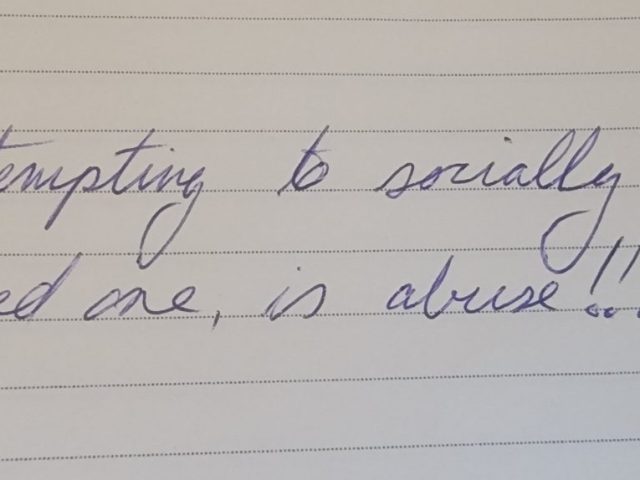 tempting to socially
ed one, is abuse!!!